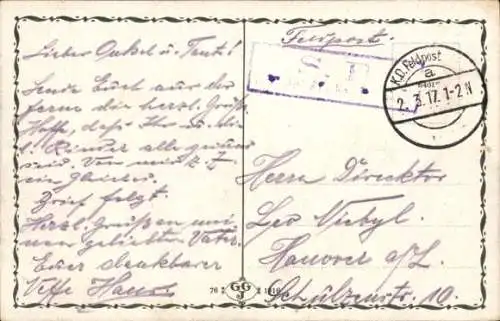 Lieber Onkel u. Tant!
Sende Euch aus der
ferne die herzl. Grüße
Hoffe, daß Ihr u. die
l. Kinder alle gesund
seid. Von mir z. Z.
ein Gleiches.
Brief folgt.
Herzl. Grüße an mei-
nen geliebten Vater.
Euer dankbarer
Neffe Hans
Feldpost.
K.D. Feldpost
a
2. 3. 17. 1-2 N
Herrn Direktor
Leo
Hanover a/L.
Schulzenstr. 10.
76
GG
J
1916